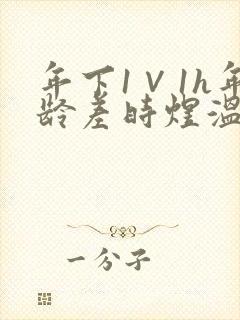 年下1V1h年
龄差时煜温
一分子